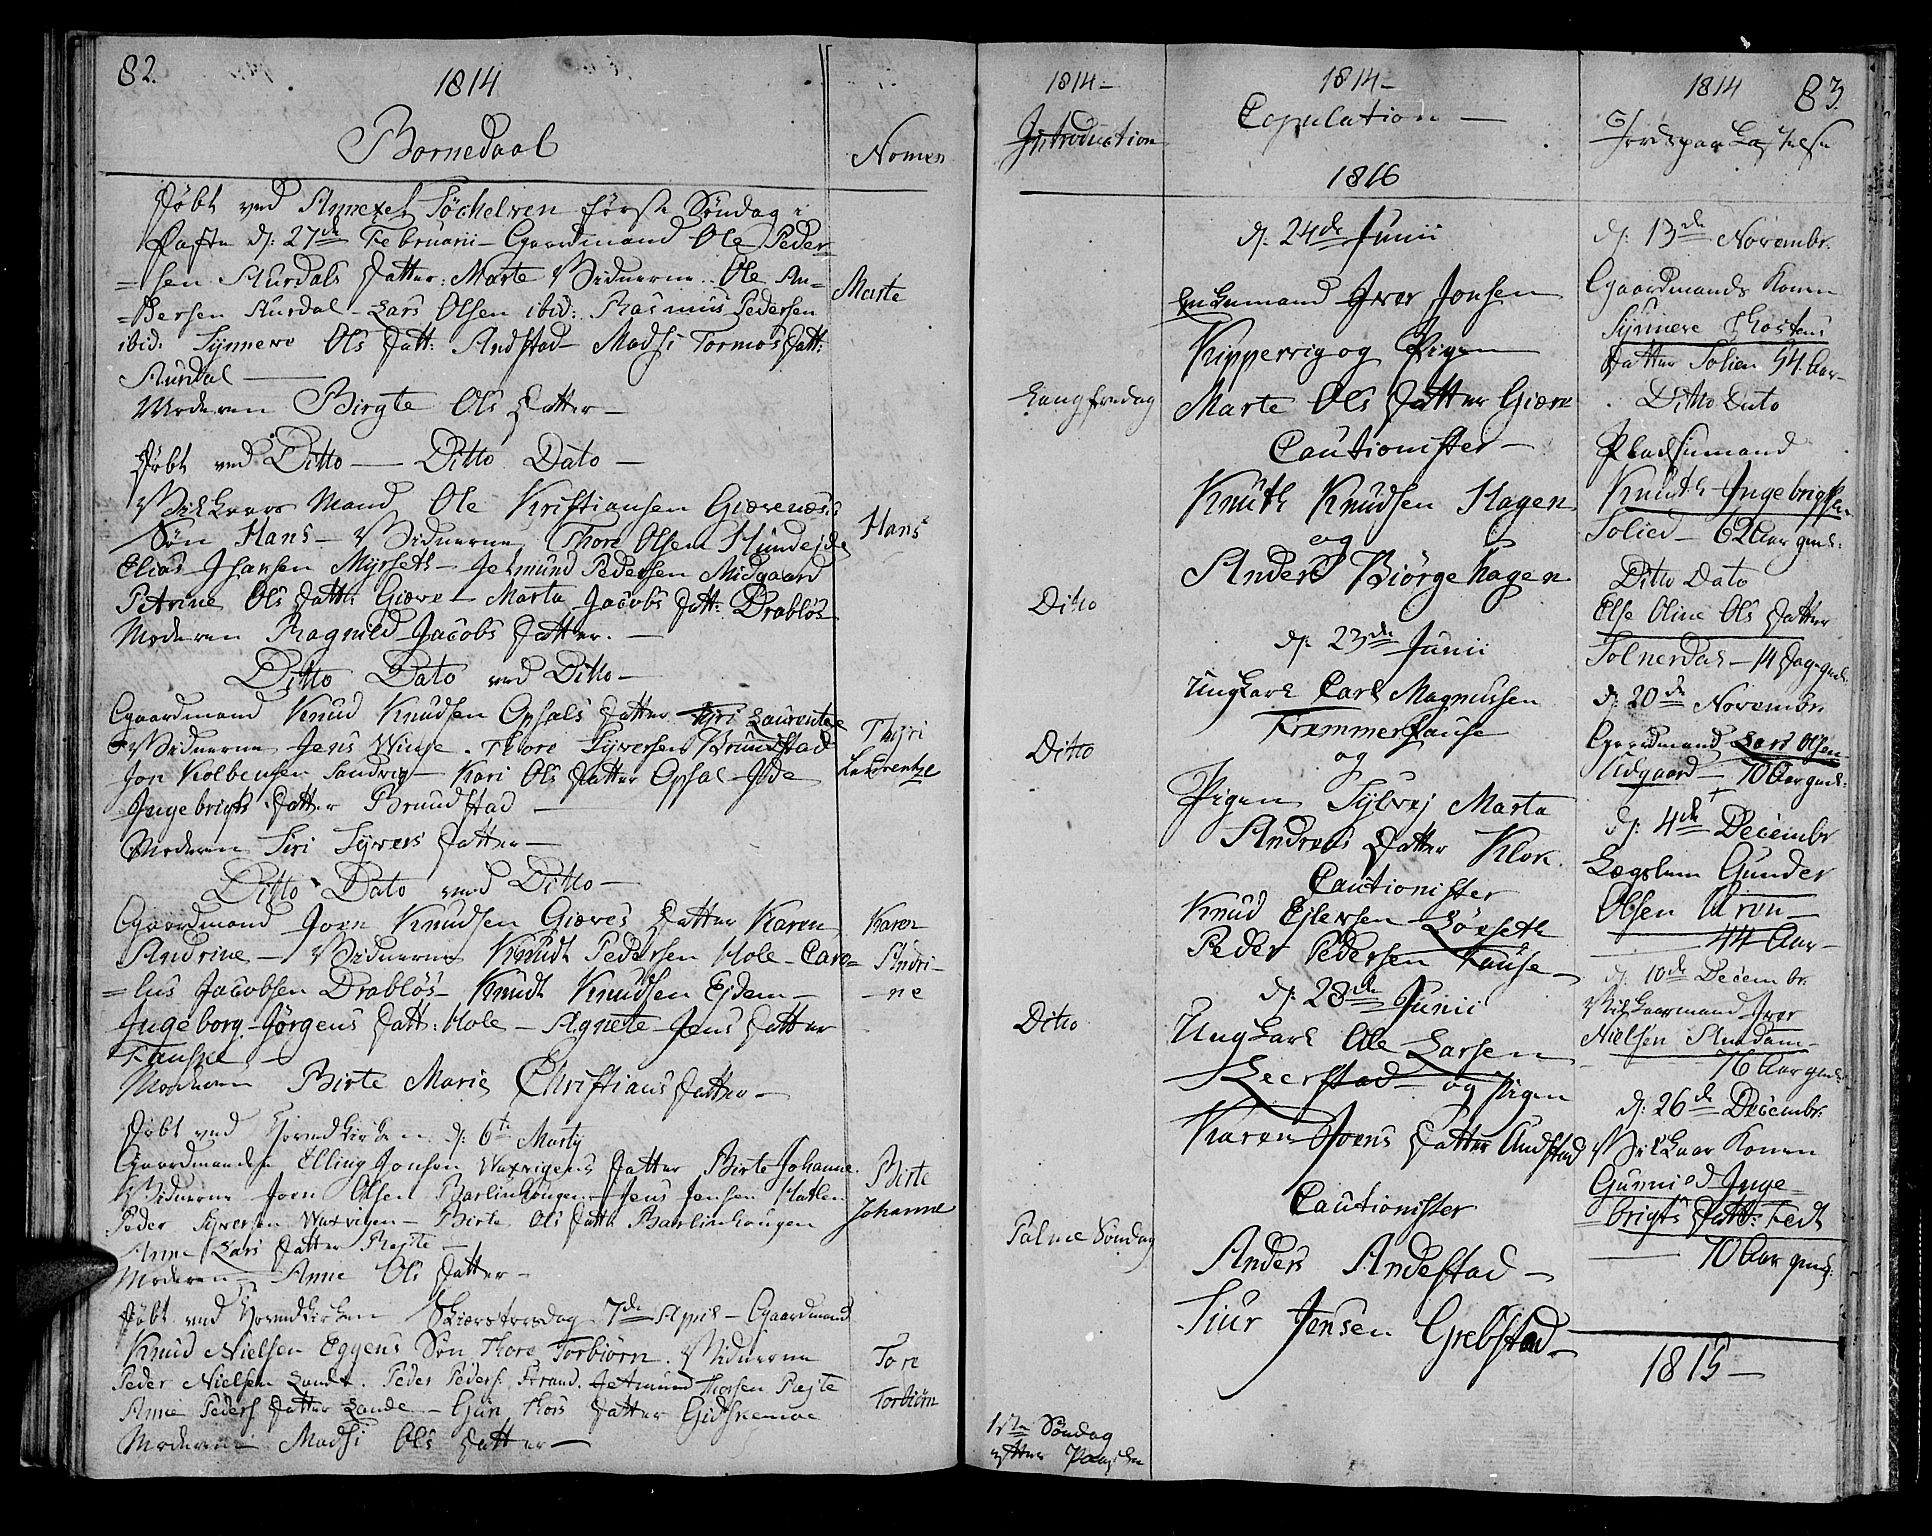 82.
1814
Bornedaal
Nomen
Døbt ved Annexet Söchelven første Söndag i
Faste d: 27de Februarii Gaardmand Ole Peder
=sen Aursdals Datter: Marte Vidnerne: Ole An=
=dersen Aurdal - Lars Olsen ibid: Rasmus Pedersen
ibid: Synnere Ols Datt: Andstad Madsi Tormos Datt:
Aurdal
Moderen Birgte Ols Datter -
Marte
Døbt ved Ditto - Ditto Dato -
Vilkaars Mand Ole Kristiansen Giærenæs's
Søn Hans - Vidnerne Thore Olsen
Elias Jhansen Myrseth - Jetmund Pedersen Midgaard
Petrine Ols Datt: Giære - Marta Jacobs Datt: Drabløs
Moderen Ragnild Jacobs Datter. -
Hans
Ditto Dato ved Ditto -
Gaardmand Knud Knudsen Opsals Datter Laurentze
Vidnerne Jens Winje. Thore Syversen Brundstad
Jon Kolbensen Sandvig - Kari Ols Datter Opsal - Ide
Ingebrigts Datter Brundstad -
Moderen Siri Syvers Datter -
Thyri
Laurentze
Ditto Dato ved Ditto -
Gaardmand Joen Knudsen Giæres Datter Karen
Andrine - Vidnerne Knudt Pedersen Hole - Care=
=lius Jacobsen Drabløs - Knudt Knudsen Ejdem -
Ingeborg Jørgens Datt: Hole - Agnete Jens Datter
Fauske -
Moderen Birte Marie Christians Datter -
Karen
Andri-
-ne
Døbt ved Hovedkirken d: 6te Marty
Gaardmanden Elling Jonsen Waxvigens Datter Birte Johanne.
Vidnerne Joen Olsen Barlinhougen - Jens Jensen
Peder Syversen Waxvigen - Birte Ols Datt: Barlinhougen
Anne Lars Datter Røjte -
Moderen - Anne Ols Datter -
Birte
Johanne
Døbt ved Hovedkirken Skiærtorsdag 7de April - Gaardmand
Knud Nielsen Eggens Søn Thore Torbiørn. Vidnerne
Peder Nielsen Lande. Peder Peders. Strand. Jetmund Thorsen Røjte
Anne Peders Datter Lande - Guri Thors Datter Gidskemoe
Moderen Madsi Ols Datter -
Tore
Torbiørn
1814 -
Introduction
Langfredag
Ditto
Ditto
Ditto
Palme Søndag
1ste Søndag
efter Paaske
1814 -
Copulation -
1816
d: 24de Junii
Enkemand Iver Jonsen
Kippervig og Pigen
Marte Ols Datter Giære
Cautionister -
Knuth Knudsen Hagen
og
Anders Biørge Hagen
d: 23de Junii
Ungkarl Carl Magnussen
Kremmerhause
og
Pigen Sylvej Marta
Andreas Datter Klok.
Cautionister
Knud Ejlersen Sørseth
Peder Pedersen Fause -
d: 28de Junii
Ungkarl Ole Larsen
Leerstad og Pigen
Karen Joens Datter Andstad
Cautionister
Anders Andestad -
Siur Jensen Grebstad -
1814 83.
Jordspaakastelse
d: 13de Novembr.
Gaardmands Konen
Synnere Thostens
Datter Solien 54. Aar -
Ditto Dato
Pladsemand
Knuth Ingebrigtsen
Solied - 62 Aar gml:
Ditto Dato
Else Oline Ols Datter
Solnerdal - 14 Dage gml:
d: 20de Novembr.
Gaardmand Lars Olsen
Utigaard - 70 Aar gml:
d: 4de Decembr
Lægslem Gunder
Olsen
44 Aar -
d: 10de Decembr.
Vilkaarmand Iver
Nielsen
76 Aar gml:
d: 26de Decembr.
Vilkaar Konen
Gunnild Inge=
=brigts Datt: Fedt
70 Aar gml:
1815 -